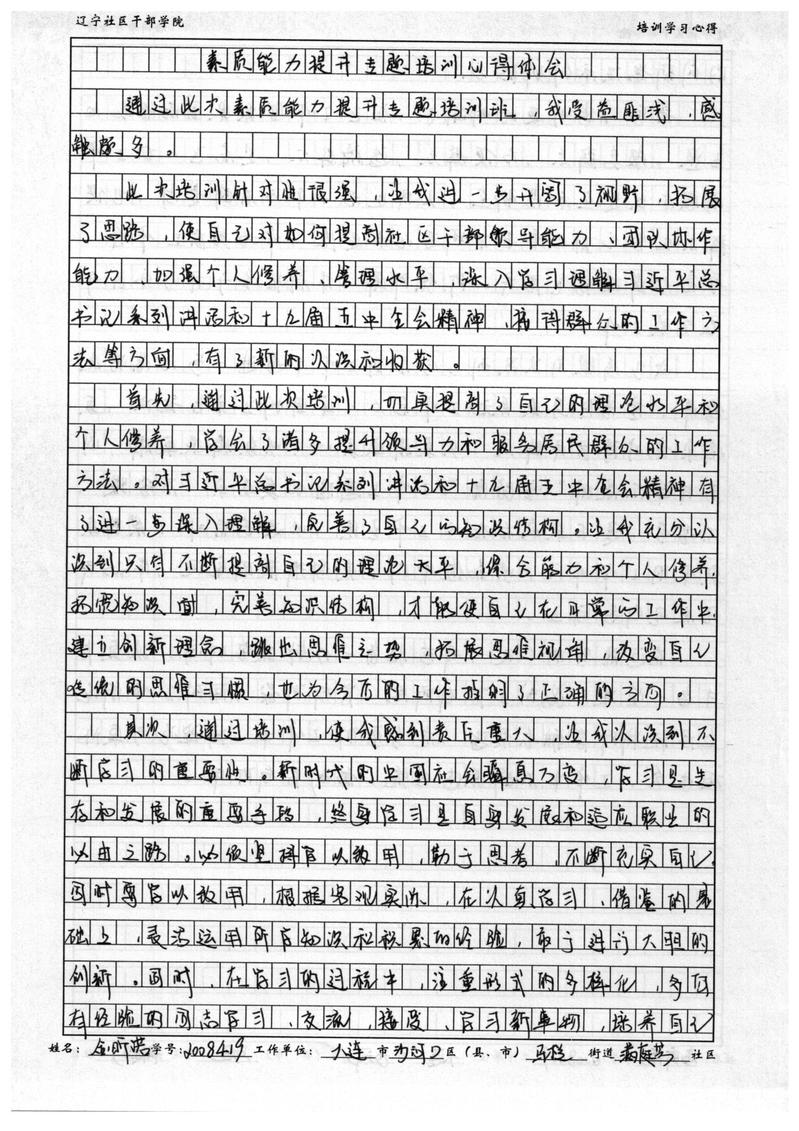 辽宁社区干部学院 培训学习心得
素质能力提升专题培训心得体会
通过此次素质能力提升专题培训班，我受益匪浅，感
触颇多。
此次培训针对性很强，让我进一步开阔了视野，拓展
了思路，使自己对如何提高社区干部领导能力、团队协作
能力，加强个人修养、管理水平，深入学习理解习近平总
书记系列讲话和十九届五中全会精神、搞得群众的工作方
法等方面，有了新的认识和收获。
首先，通过此次培训，切真提高了自己的理论水平和
个人修养，学会了诸多提升领导力和服务居民群众的工作
方法。对习近平总书记系列讲话和十九届五中全会精神有
了进一步深入理解，完善了自己的知识结构。让我充分认
识到只有不断提高自己的理论水平、综合能力和个人修养，
拓宽知识面，完善知识结构，才能使自己在日常的工作中
建立创新理念，跳出思维之势，拓展思维视角，改变自己
传统的思维习惯，也为今后的工作指明了正确的方向。
其次，通过培训，使我感到责任重大，让我认识到不
断学习的重要性。新时代的中国社会瞬息万变，学习是生
存和发展的重要手段，终身学习是自身发展和适应职业的
必由之路。以后坚持学以致用，勤于思考，不断充实自己，
同时要学以致用，根据客观实际，在认真学习、借鉴的基
础上，灵活运用所学知识和积累的经验，敢于进行大胆的
创新。同时，在学习的过程中，注重形式的多样化，多向
有经验的同志学习、交流，接受、学习新事物，培养自己
姓名： 学号：2008419 工作单位：大连市沙河口区（县、市） 街道 社区